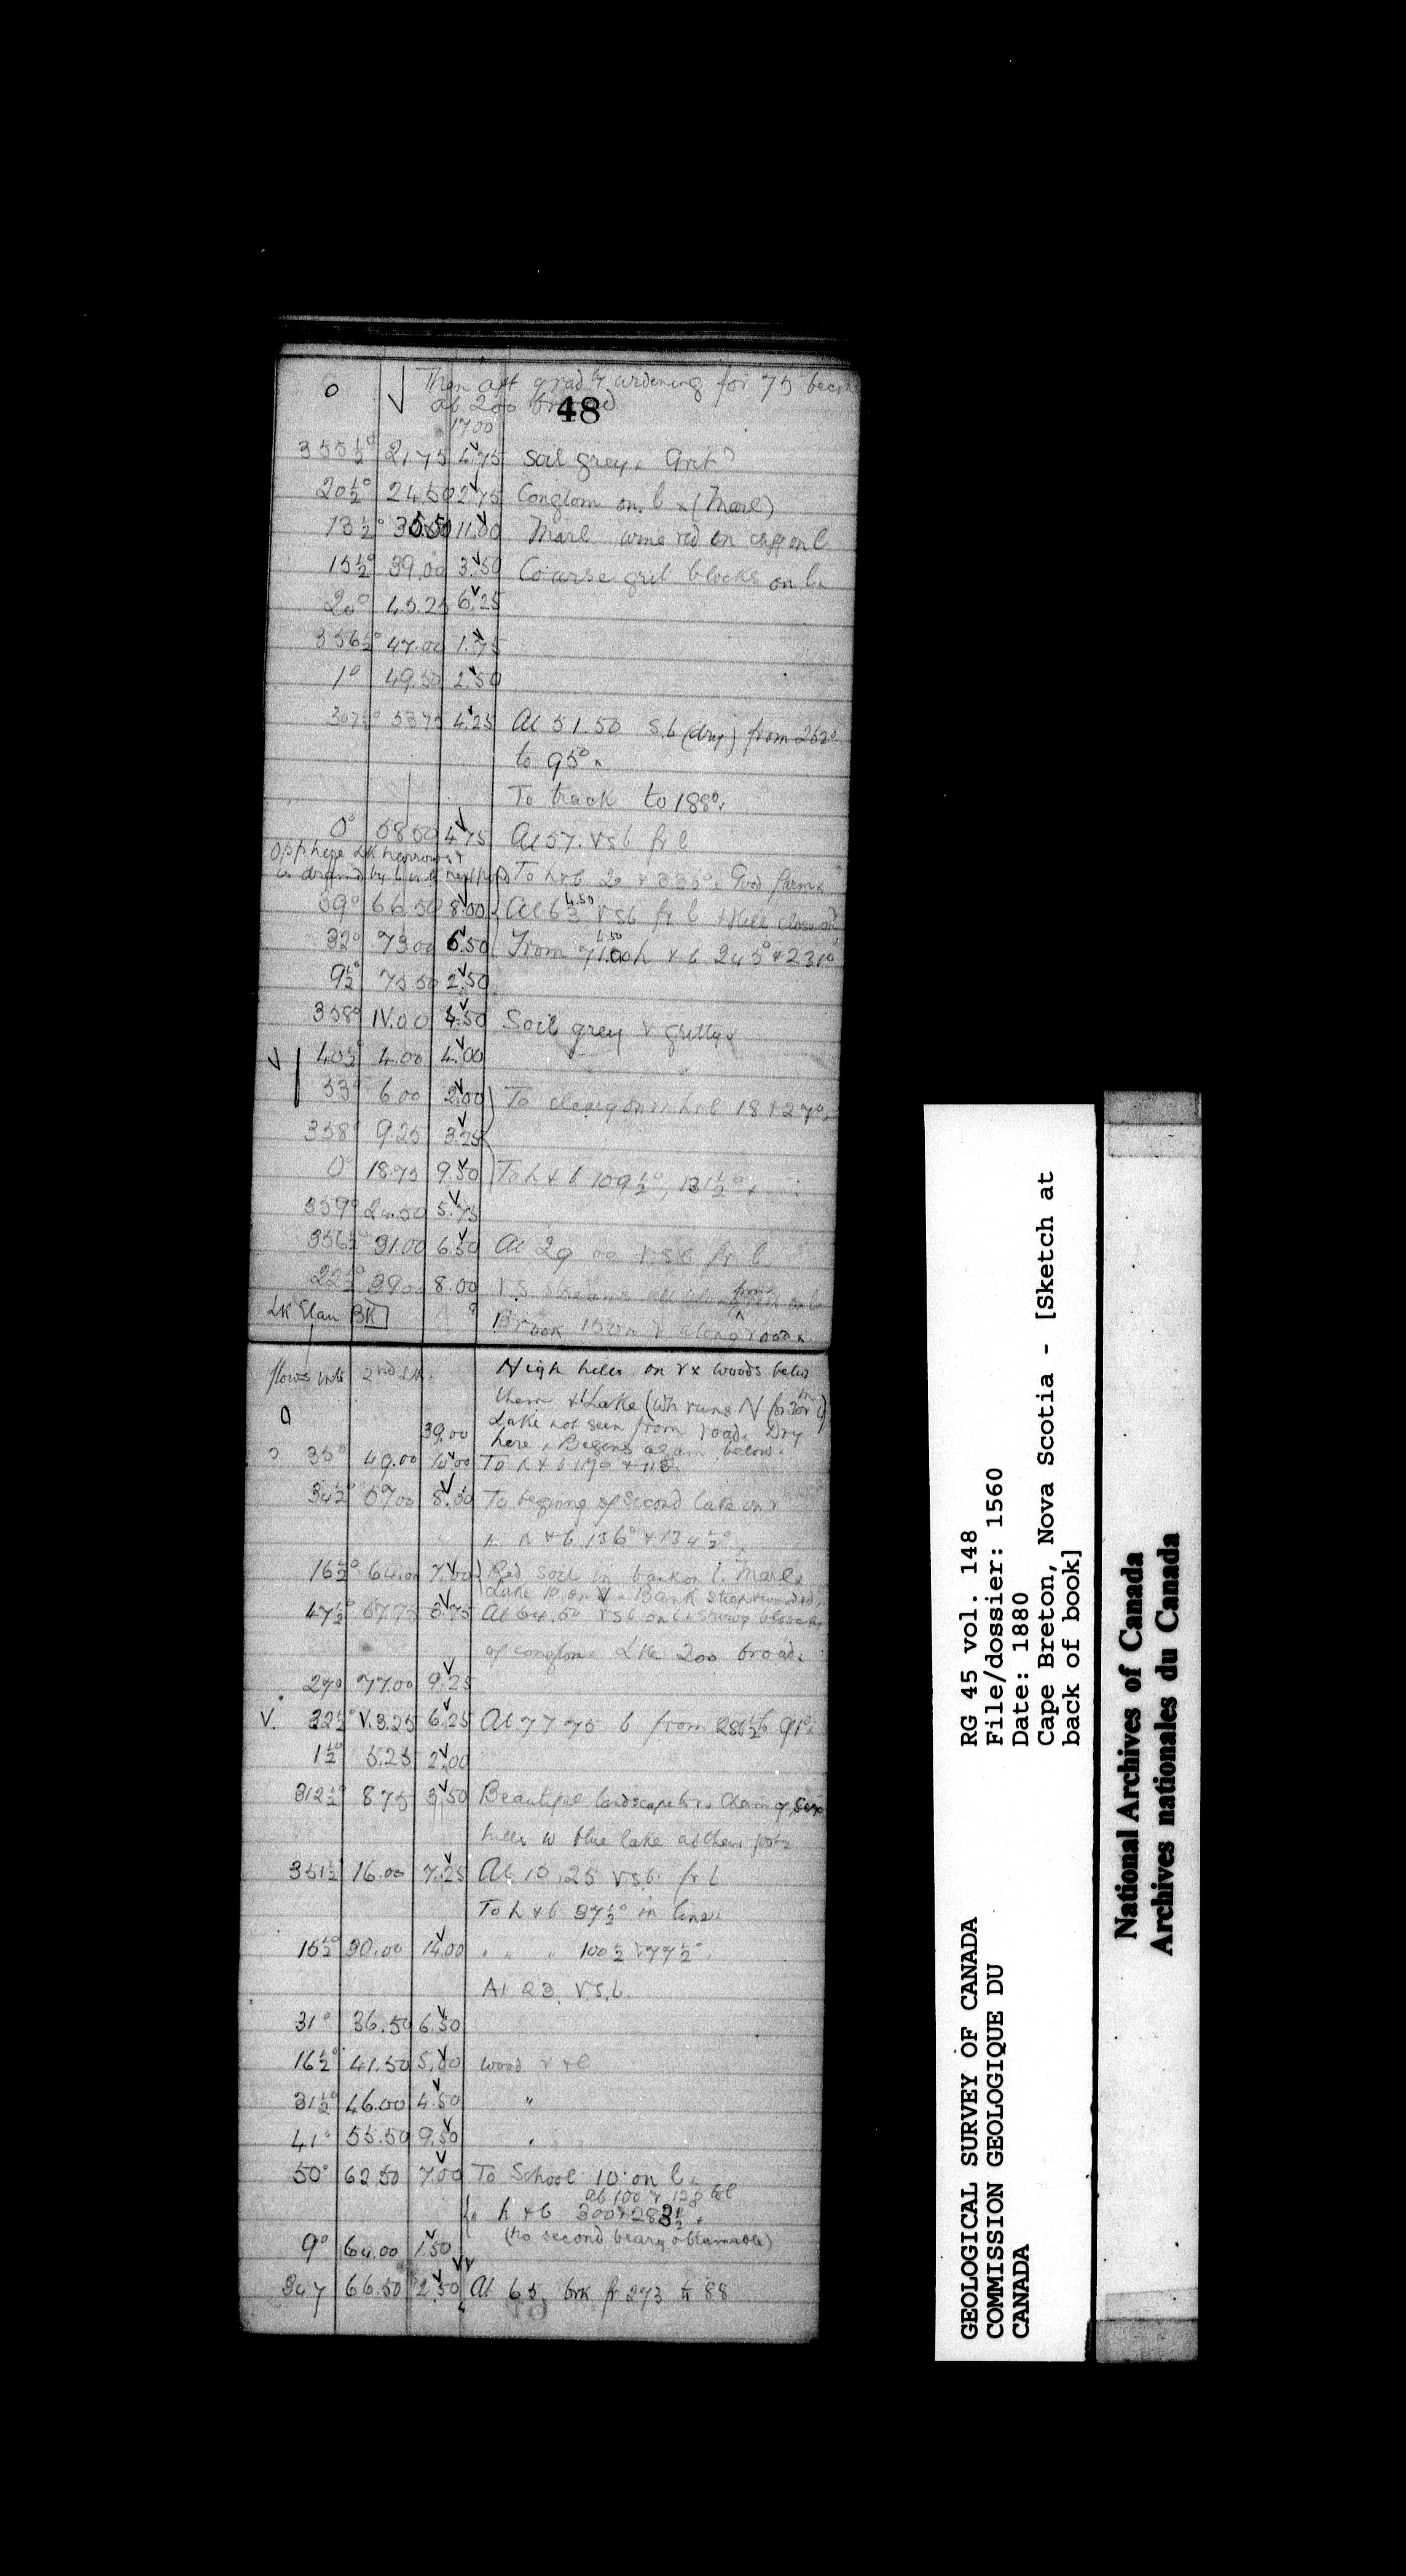 0 Then aft grad^ly widening for 75
at 200 broad
48
17.00
355½° 21.75 4.75 Soil grey. Grit?
20½° 24.50 2.75 Conglom on l x (Marl)
13½° 35.50 11.00 Marl wine red on l
15½° 39.00 3.50 Coarse grit blocks on l.
20° 45.25 6.25
356½° 47.00 1.75
1° 49.50 2.50
307½° 53.75 4.25 At 51.50 s.b (dry) from 262°
to 95° x
To track to 188°.
0° 58.50 4.75 At 57. vsb fr l
Opp here LK narrows &
is drained by To h & b 2° & 336° x Good farm x
39° 66.50 8.00 At 63 4.50 vsb fr l
32° 73.00 6.50 From 71.00 1.50 h & b 245° & 231°
9½° 75.50 2.50
358° IV.0.0 4.50 Soil grey & gritty x
40½° 4.00 4.00
53° 6.00 2.00 To h & b 18 & 27°
358° 9.25 3.25
0° 18.75 9.50 To h & b 109½°, 131½° x
359° 24.50 5.75
356½° 31.00 6.50 At 29.00 vsb fr l
22½° 39.00 8.00 from
LK Elan BK Brook 150 on r along road x
flows into 2nd LK. High hills on r x woods betw
0 them & Lake (wh runs N for 30r
39.00 Lake not seen from road. Dry
here, Begins again below.
35° 49.00 10.00 To h & b
34½° 57.00 8.00 To begining of second lake on r
h & b 136° & 134½°
16½° 64.00 7.00 Red soil in bank on l. Marl x
Lake 10 on r. Bank steep & wooded
47½° 67.75 3.75 At 64.50 vsb on l x
of conglom x LK 200 broad.
27° 77.00 9.25
V. 32½° V.3.25 6.25 At 77.75 b from 286½ to 91° x
1½° 5.25 2.00
312½° 8.75 3.50 Beautiful landscape
hills w blue lake at their foot x
351½° 16.00 7.25 At 10.25 vsb. fr l
To h & b 37½° in line x
16½° 30.00 14.00 " " " 100½ & 77½°
At 23. v.s.b.
31° 36.50 6.50
16½° 41.50 5.00 Wood r & l
31½° 46.00 4.50 "
41° 55.50 9.50 "
50° 62.50 7.00 To School 10 on l x
" h & b 300 & 283½ x
(No second bearg obtainable)
9° 64.00 1.50
347 66.50 2.50 At 65, brk fr 273 to 88
GEOLOGICAL SURVEY OF CANADA
COMMISSION GEOLOGIQUE DU
CANADA
RG 45 vol. 148
File/dossier: 1560
Date: 1880
Cape Breton, Nova Scotia - [Sketch at
back of book]
National Archives of Canada
Archives nationales du Canada